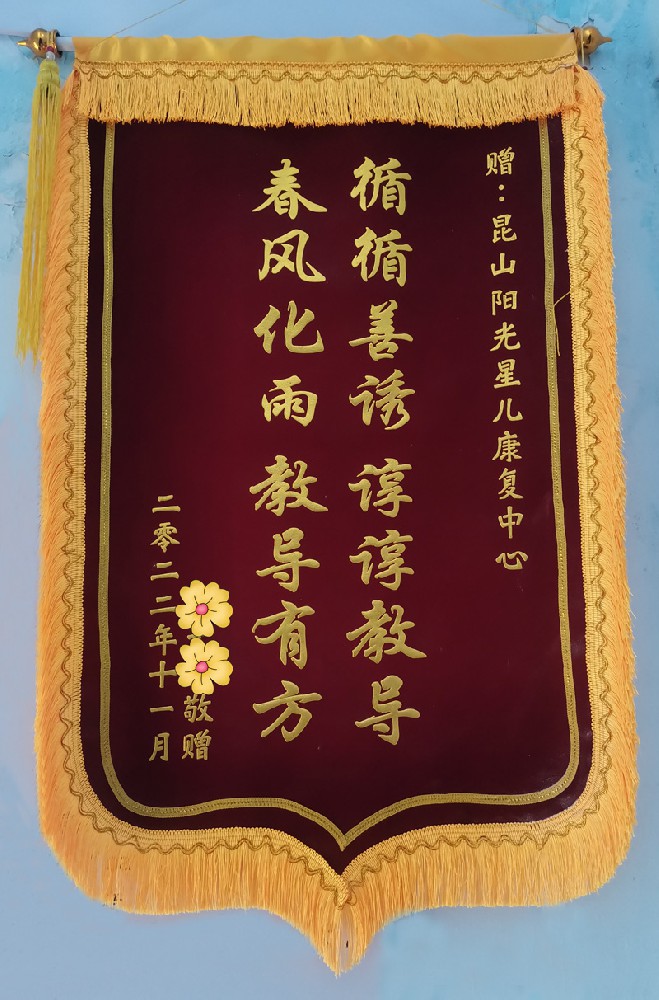 赠：昆山阳光星儿康复中心
循循善诱 谆谆教导
春风化雨 教导有方
敬赠
二零二二年十一月